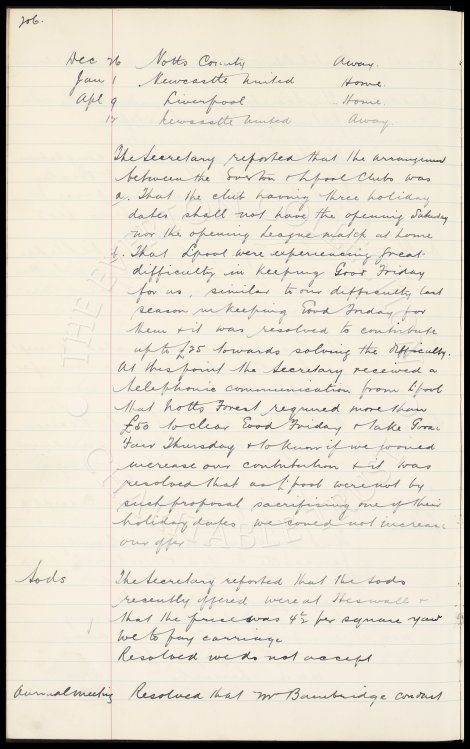 706.
Dec 26 Notts County Away.
Jan 1 Newcastle United Home.
Apl 9 Liverpool Home.
12 Newcastle United Away.
The Secretary reported that the arrangement
between the Everton & Lpool Clubs was
a. That the club having three holiday
dates shall not have the opening Saturday
nor the opening League match at home
b. That Lpool were experiencing great
difficulty in keeping Good Friday
for us, similar to our difficulty last
season in keeping Good Friday for
them & it was resolved to contribute
up to £25 towards solving the difficulty.
At this point the Secretary received a
telephonic communication from Lpool
that Notts Forest required more than
£50 to clear Good Friday & take Goose
Fair Thursday & to know if we would
increase our contribution & it was
resolved that as Lpool were not by
such proposal sacrificing one of their
holiday dates we could not increase
our offer
Sods The Secretary reported that the sods
recently offered were at Heswall &
that the price was 4½ per square yard
we to pay carriage
Resolved we do not accept
Annual Meeting Resolved that Mr Bainbridge conduct
THE EVERTON
CHARITABLE TRUST